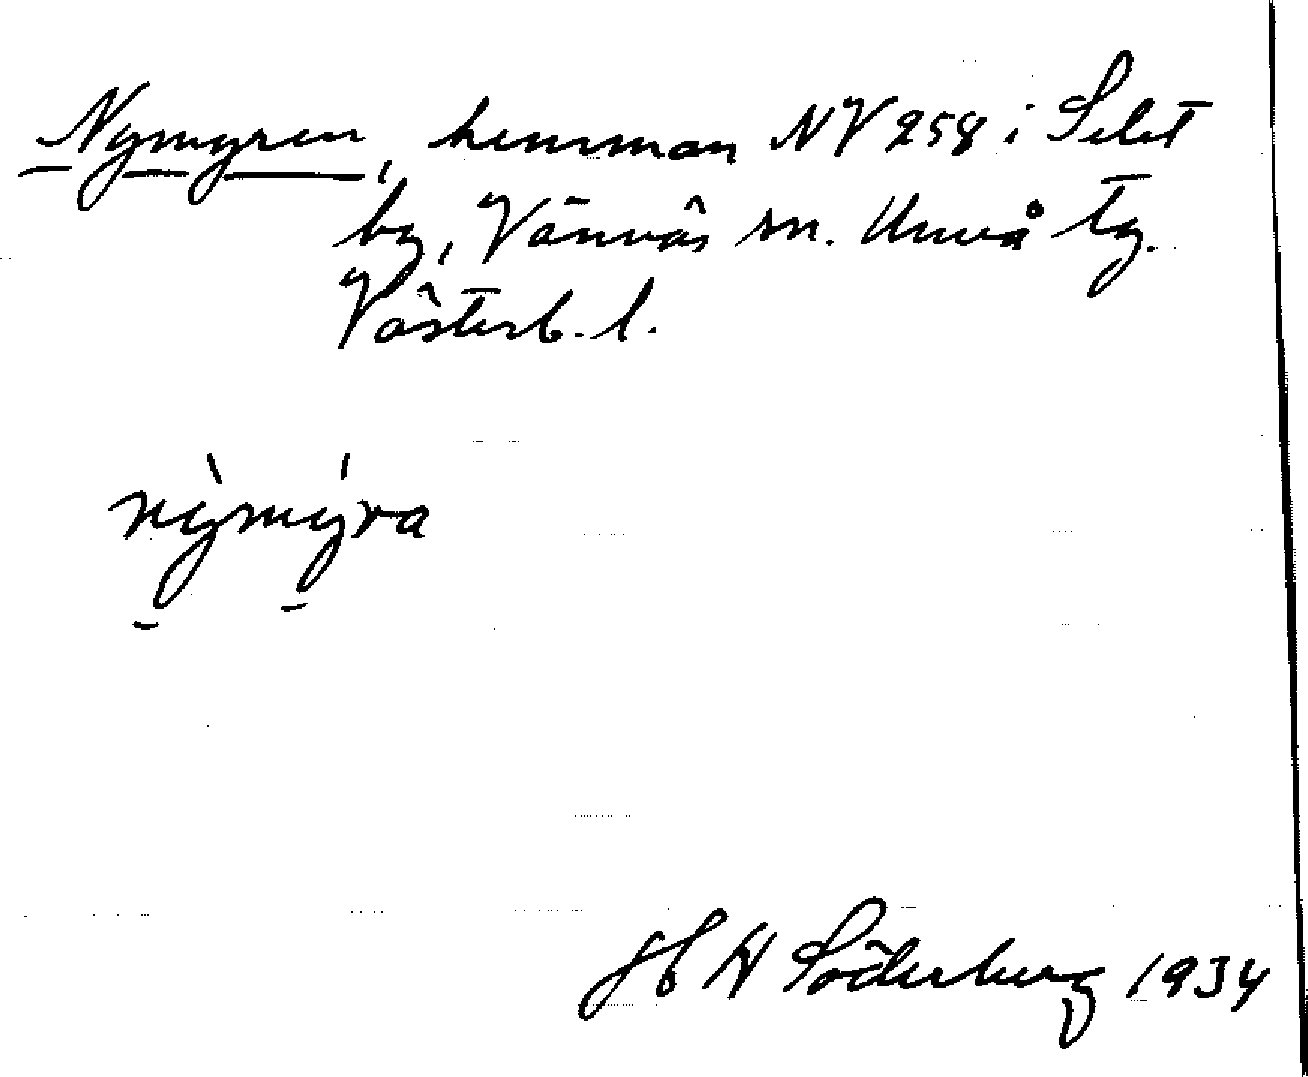 Nymyren, hemman NV 258 i Selet
by, Vännäs sn. Umeå tg.
Västerb. l.
nỳmýra
H W Söderberg 1934